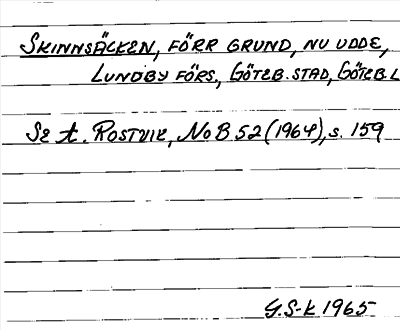 SKINNSÄCKEN, FÖRR GRUND, NU UDDE,
LUNDBY FÖRS., GÖTEB. STAD, GÖTEB. L
Se A. ROSTVIK, NoB 52 (1964), s. 159
G.S-k 1965